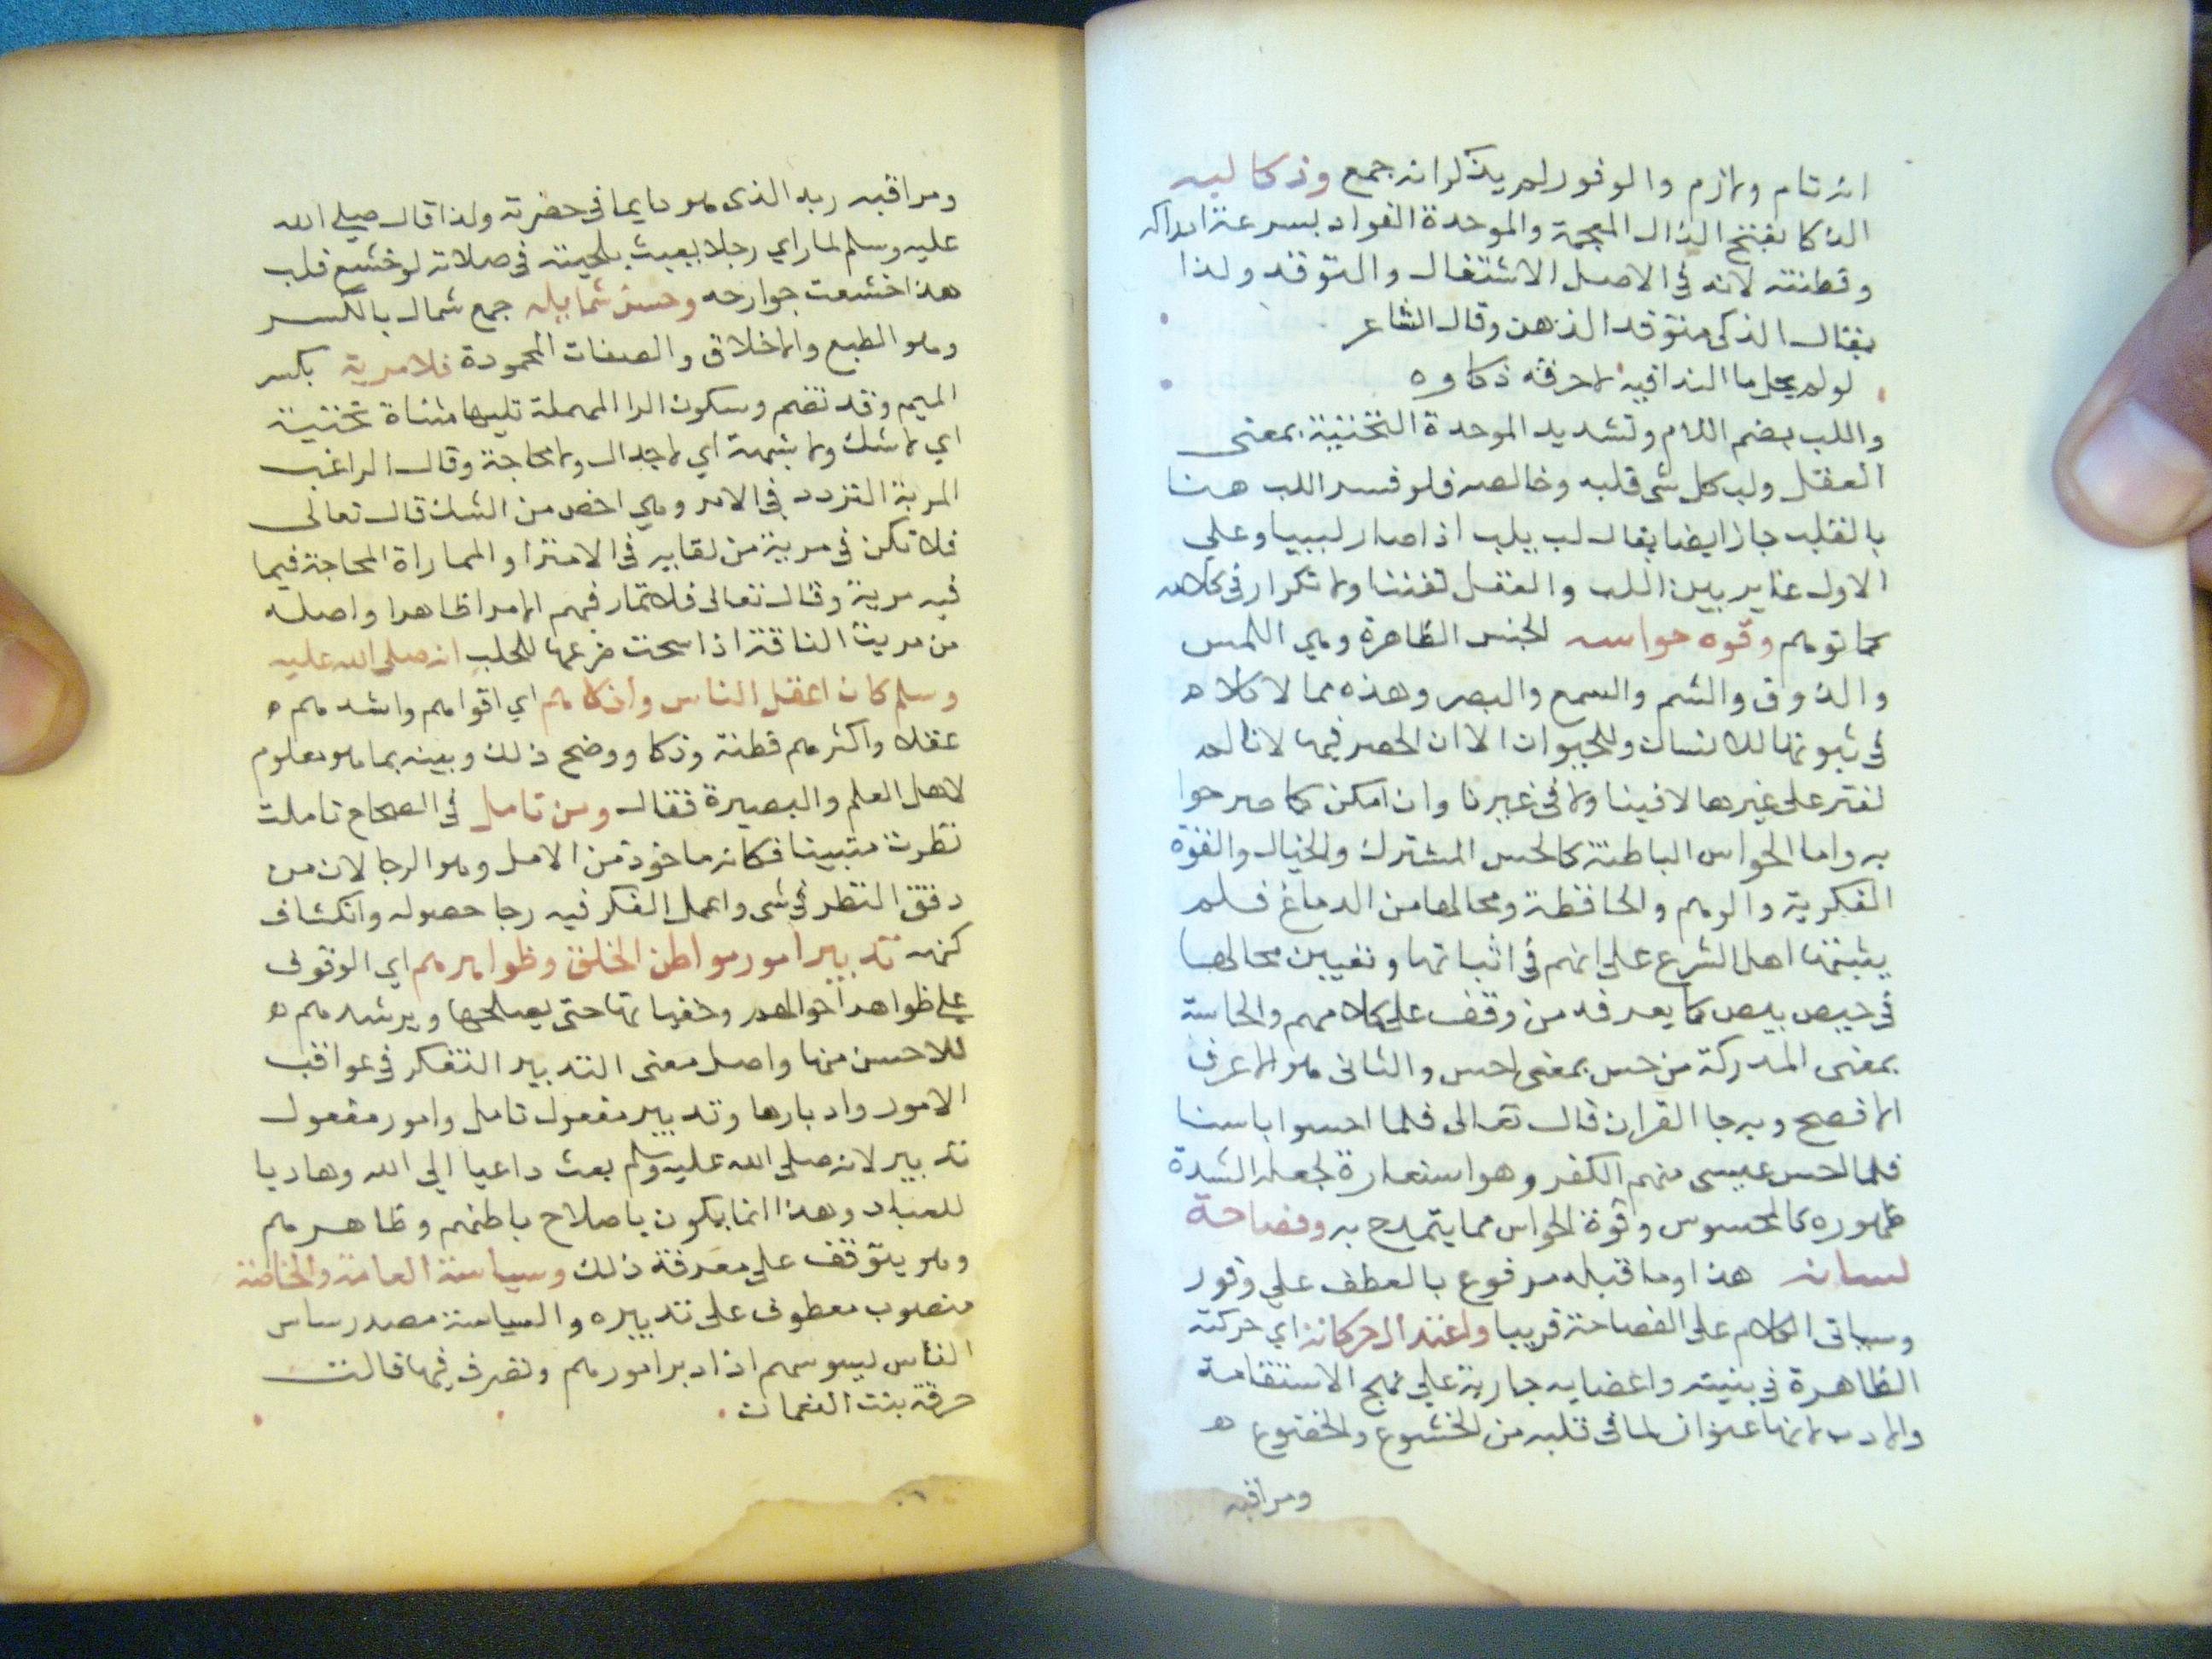 انه تام ولازم والوفور لم يذكرانه جمع وذكا لبه
الذكا بفتح الذال المعجمة والموحدة الفواد بسرعة ادراكه
وفطنته لانه في الاصل الاشتعال والتوقد ولذا
يقال الذكي متوقد الذهن وقال الشاعر
لو لم يحل ما الندا فيه لاحرقه ذكاوه
واللب بضم اللام وتشديد الموحدة التحتية بمعنى
العقل ولب كل شي قلبه وخالصه فلو فسر اللب هنا
بالقلب جاز ايضا يقال لب يلب اذا صار لبيبا وعلي
الاول غاير بين اللب والعقل تفننا ولا تكرار في كلامه
كما توهم وقوه حواسه الخمس الظاهرة وهي اللمس
والذوق والشم والسمع والبصر وهذه مما لا كلام
في ثبوتها للانسان وللحيوان الا ان الحصر فيها لانا لم
نعثر على غيرها لا فينا ولا في غيرنا وان امكن كما صرحوا
به واما الحواس الباطنة كالحس المشترك والخيال والقوة
الفكرية والوهم والحافظة ومحالها من الدماغ فلم
يثبتها اهل الشرع علي انهم في اثباتها وتعيين محالها
في حيص بيص كما يعرفه من وقف على كلامهم والحاسة
بمعنى المدركة من حس بمعنى احس والثاني هو الاعرف
الافصح وبه جا القران قال تعالى فلما احسوا باسنا
فلما احس عيسى منهم الكفر وهو استعارة لجعله الشدة
ظهوره كالمحسوس وقوة الحواس مما يتمدح به وفصاحة
لسانه هذا وما قبله مرفوع بالعطف علي وفور
وسياتى الكلام على الفصاحة قريبا واعتدال حركاته اي حركته
الظاهرة في بنيته واعضايه جارية علي نهج الاستقامة
والادب لانها عنوان لما في قلبه من الخشوع والخضوع
ومراقبه
ومراقبه ربه الذى هو دايما في حضرته ولذا قال صلى الله
عليه وسلم لما راي رجلا يعبث بلحيته في صلاته لو خشع قلب
هذا خشعت جوارحه وحسن شمايله جمع شمال بالكسر
وهو الطبع والاخلاق والصفات المحمودة فلامرية بكسر
الميم وقد تضم وسكون الرا المهملة تليها مثناة تحتية
اي لا شك ولا شبهة اي لا جدال ولا محاجة وقال الراغب
المرية التردد في الامر وهي اخص من الشك قال تعالى
فلا تكن في مرية من لقايه في الامترا والمماراة المحاجة فيما
فيه مرية وقال تعالى فلا تمار فيهم الا مرا ظاهرا واصله
من مريت الناقة اذا مسحت ضرعها للحلب انه صلى الله عليه
وسلم كان اعقل الناس واذكاهم اي اقواهم واشدهم
عقلا واكثرهم فطنة وذكا ووضح ذلك وبينه بما هو معلوم
لاهل العلم والبصيرة فقال ومن تامل في الصحاح تاملت
نظرت متبينا فكانه ماخوذ من الامل وهو الرجا لان من
دقق النظر في شى واعمل الفكر فيه رجا حصوله وانكشاف
كنهه تدبير امور بواطن الخلق وظواهرهم اي الوقوف
علي ظواهر احوالهم وخفياتها حتى يصلحها ويرشدهم
للاحسن منها واصل معنى التدبير التفكر في عواقب
الامور وادبارها وتدبير مفعول تامل وامور مفعول
تدبير لانه صلى الله عليه وسلم بعث داعيا الي الله وهاديا
للعباد وهذا انما يكون باصلاح باطنهم وظاهرهم
وهو يتوقف علي معرفة ذلك وسياسة العامة والخاصة
منصوب معطوف على تدبيره والسياسة مصدر ساس
الناس يسوسهم اذا دبر امورهم وتصرف فيها قالت
حرقة بنت النعمان